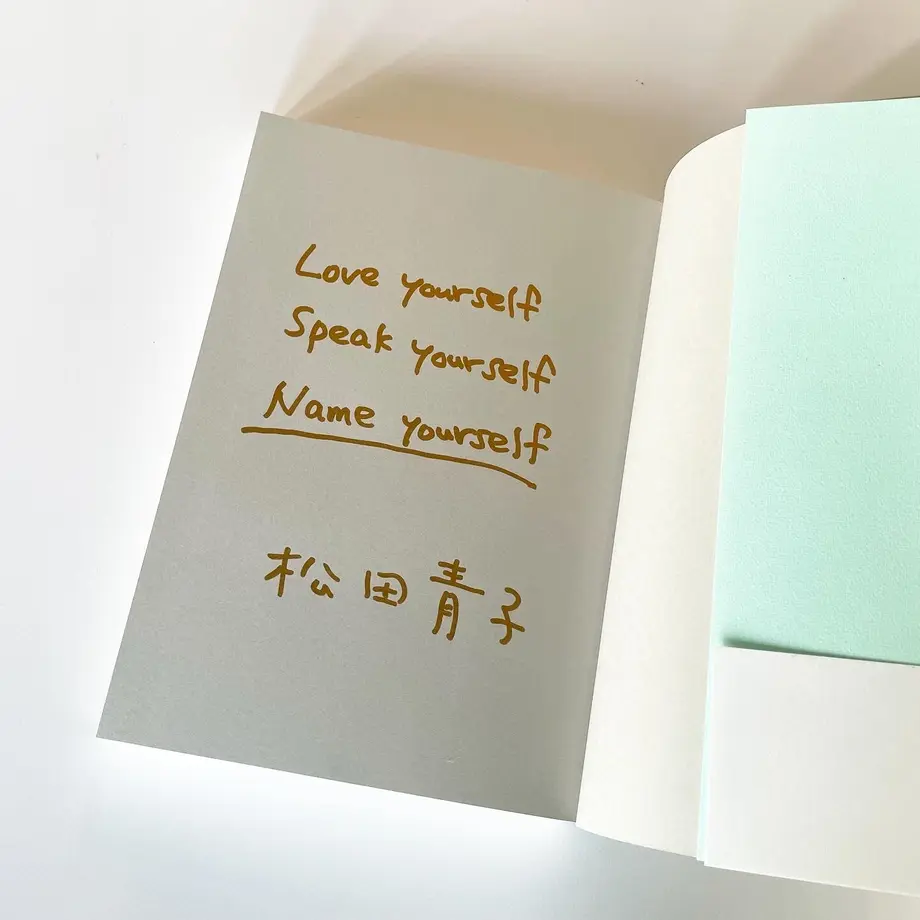 Love yourself
Speak yourself
Name yourself
松田青子